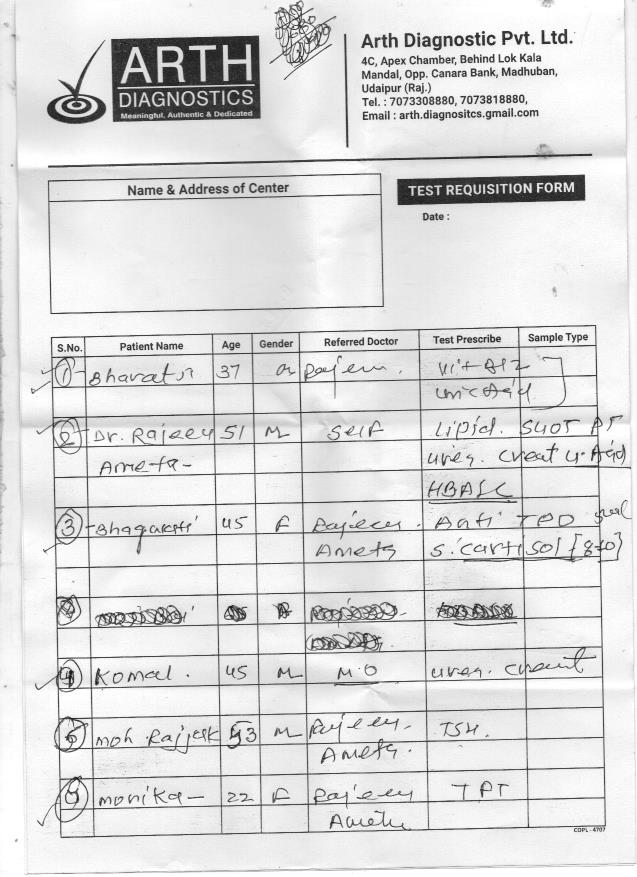 ARTH
DIAGNOSTICS
Meaningful, Authentic & Dedicated
Arth Diagnostic Pvt. Ltd.
4C, Apex Chamber, Behind Lok Kala
Mandal, Opp. Canara Bank, Madhuban,
Udaipur (Raj.)
Tel. : 7073308880, 7073818880,
Email : arth.diagnositcs.gmail.com
Name & Address of Center
TEST REQUISITION FORM
Date :
S.No. Patient Name Age Gender Referred Doctor Test Prescribe Sample Type
1 - Bharat Ji 37 Vit B12
Uric Acid
2 - Dr. Rajeev 51 M Self Lipid. SGOT PT
Ameta - Urea. Creat U. Acid
HBA1C
3 - Bhagwati 45 F Rajeev. Anti TPO
Ameta S. Cartisol [8:00]
4 Komal. 45 M M.O Urea. Creat
5 Moh Rajjak 53 M Rajeev. TSH.
Ameta.
Monika - 22 F Rajeev
Ameta
CDPL - 4707